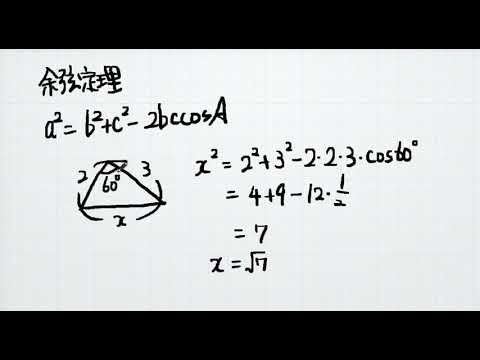 余弦定理
a²=b²+c²-2bccosA
2 60° 3
x
x²=2²+3²-2·2·3·cos60°
=4+9-12·½
=7
x=√7